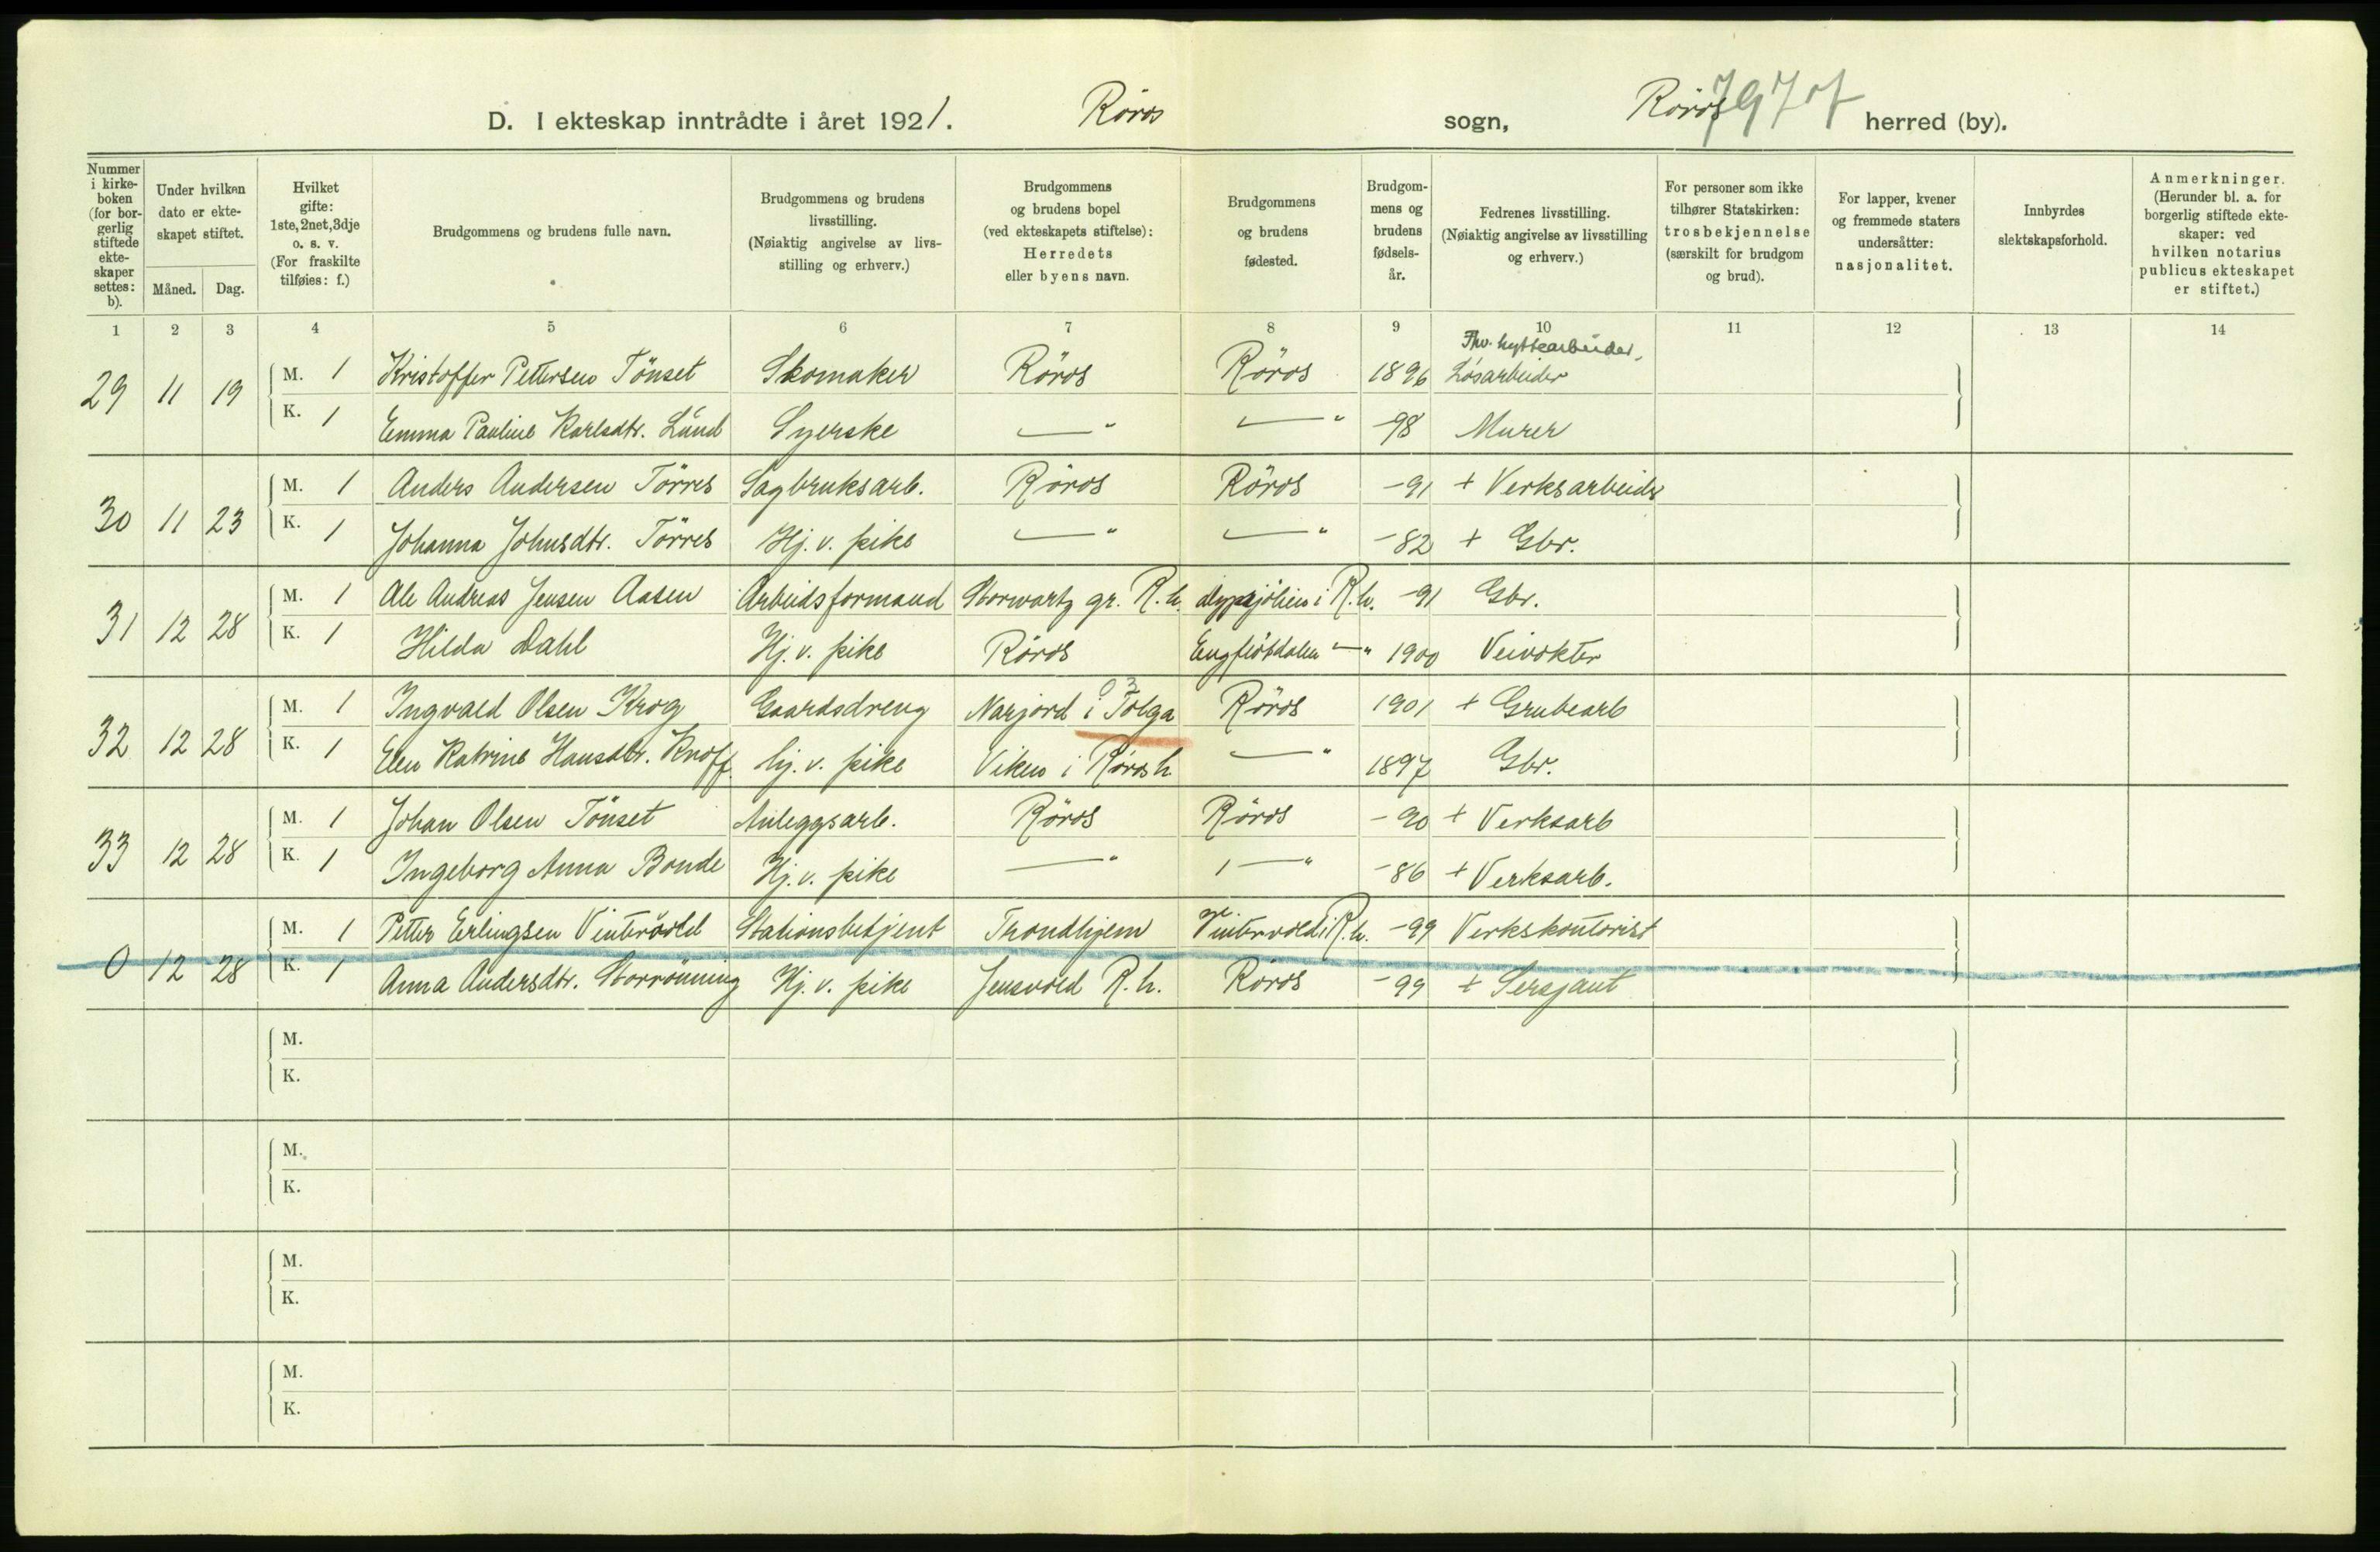 D. I ekteskap inntrådte i året 1921. Röros sogn, Röros herred (by).
Nummer i kirke- boken (for bor- gerlig stiftede ekte- skaper settes: b).
Under hvilken dato er ekte- skapet stiftet.
Måned. Dag.
Hvilket gifte: 1ste, 2net, 3dje o. s. v. (For fraskilte tilføies: f.)
Brudgommens og brudens fulle navn.
Brudgommens og brudens livsstilling. (Nøiaktig angivelse av livs- stilling og erhverv.)
Brudgommens og brudens bopel (ved ekteskapets stiftelse): Herredets eller byens navn.
Brudgommens og brudens fødested.
Brudgom- mens og brudens fødsels- år.
Fedrenes livsstilling. (Nøiaktig angivelse av livsstilling og erhverv.)
For personer som ikke tilhører Statskirken: trosbekjennelse (særskilt for brudgom og brud).
For lapper, kvener og fremmede staters undersåtter: nasjonalitet.
Innbyrdes slektskapsforhold.
Anmerkninger. (Herunder bl. a. for borgerlig stiftede ekte- skaper: ved hvilken notarius publicus ekteskapet er stiftet.)
1 2 3 4 5 6 7 8 9 10 11 12 13 14
Fhv. hyttearbeider,
29 11 19 M. 1 Kristoffer Pettersen Tönset Skomaker Röros Röros 1896 Løsarbeider
K. 1 Emma Pauline Karlsdtr. Lund Syerske —"— —"— -98 Murer
30 11 23 M. 1 Anders Andersen Törres Sagbruksarb. Röros Röros -91 + Verksarbeider
K. 1 Johanna Johnsdtr. Törres Hj. v. pike —"— —"— -82 + Gbr.
31 12 28 M. 1 Ole Andreas Jensen Aasen Arbeidsformand Storwartz gr. R.h. i R.h. -91 Gbr.
K. 1 Hilda Dahl Hj. v. pike Röros —"— 1900 Veivokter
32 12 28 M. 1 Ingvald Olsen Krog Gaardsdreng Narjord i Tolga Röros 1901 + Grubearb
K. 1 Elen Katrine Hansdtr. Knoff hj. v. pike Viken i Röros h. —"— 1897 Gbr.
33 12 28 M. 1 Johan Olsen Tönset Anleggsarb. Röros Röros -90 + Verksarb
K. 1 Ingeborg Anna Bonde Hj. v. pike —"— —"— -86 + Verksarb.
0 12 28 M. 1 Petter Erlingsen Vintervold Stationsbetjent Trondhjem Vintervold i R.h. -99 Verkskontorist
K. 1 Anna Andersdtr. Storrönning Hj. v. pike Jensvold R. h. Röros -99 + Sersjant
M.
K.
M.
K.
M.
K.
M.
K.